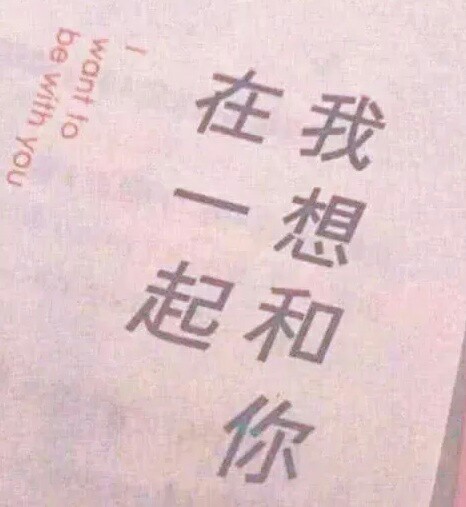 我想和你
在一起
I
want to
be with you